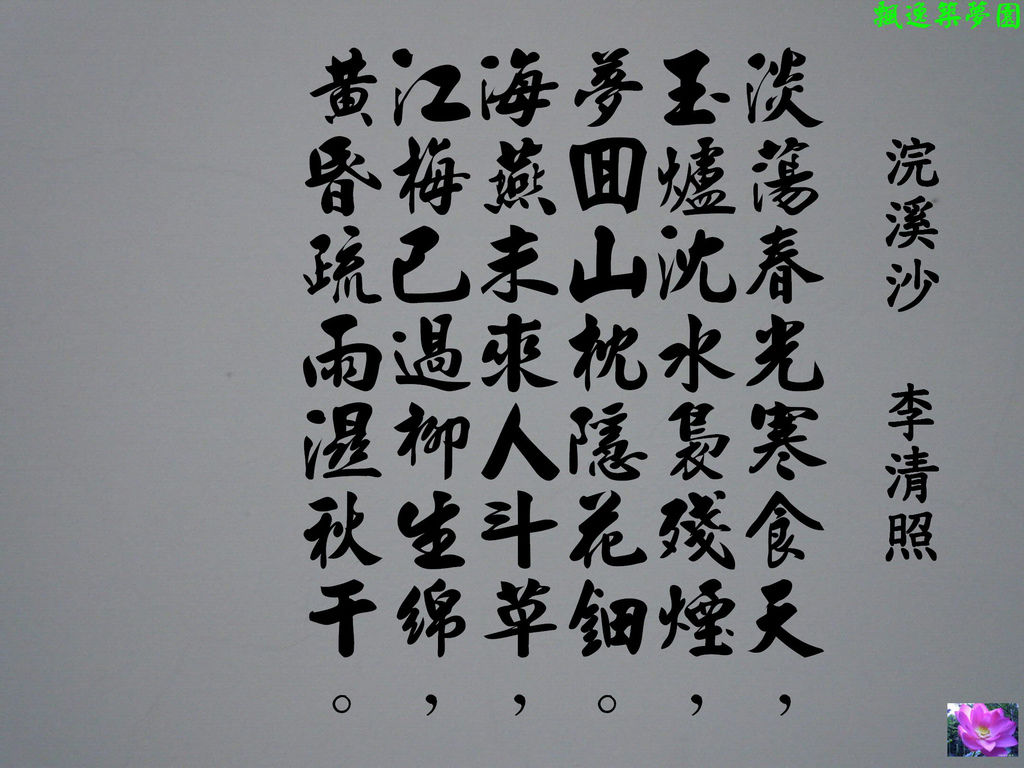 飄逸築夢園
浣溪沙 李清照
淡蕩春光寒食天，
玉爐沈水裊殘煙，
夢回山枕隱花鈿。
海燕未來人斗草，
江梅已過柳生綿，
黃昏疏雨濕秋千。